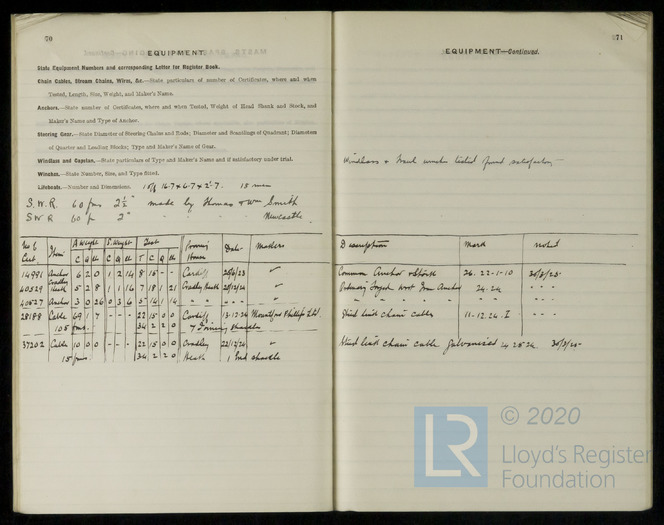 70
EQUIPMENT.
State Equipment Numbers and corresponding Letter for Register Book.
Chain Cables, Stream Chains, Wires, &c.—State particulars of number of Certificates, where and when
Tested, Length, Size, Weight, and Maker's Name.
Anchors.—State number of Certificates, where and when Tested, Weight of Head Shank and Stock, and
Maker's Name and Type of Anchor.
Steering Gear.—State Diameter of Steering Chains and Rods; Diameter and Scantlings of Quadrant; Diameters
of Quarter and Leading Blocks; Type and Maker's Name of Gear.
Windlass and Capstan.—State particulars of Type and Maker's Name and if satisfactory under trial.
Winches.—State Number, Size, and Type fitted.
Lifeboats.—Number and Dimensions. 16.7 x 6.7 x 2.7. 15 men
S.W.R. 60 fms 2½" made by Thomas & Wm Smith
S W R 60 f 2" " " " Newcastle
No of Cert. Item A Weight S. Weight Test Proving House Date Makers
C Q lb C Q lb T C Q lb
14991 Anchor 6 2 0 1 2 14 8 15 - - Cardiff 20/6/23 "
40529 5 2 8 1 1 16 7 18 1 21 Cradley Heath 20/12/24 "
40527 Anchor 3 0 26 0 3 6 5 14 1 14 " " " "
28188 Cable 69 1 7 - - - 22 15 0 0 Cardiff 13.12.24
105 fms. 34 2 2 0 7 Joining Shackles
37202 Cable 10 0 0 - - - 22 15 0 0 Cradley 22/12/24 "
15 fms 34 2 2 0 Heath 1 End Shackle
71
EQUIPMENT—Continued.
Windlass & found satisfactory
Description Mark
Common Anchor & Stock 26.22-1-10 30/3/25
Ordinary Forged Wrot Iron Anchor 24.24 " " "
" " " " " " " " "
Stud link chain cable 11-12.24.I " " "
Stud link chain cable Galvanised 30/3/25
© 2020
LR
Lloyd's Register
Foundation